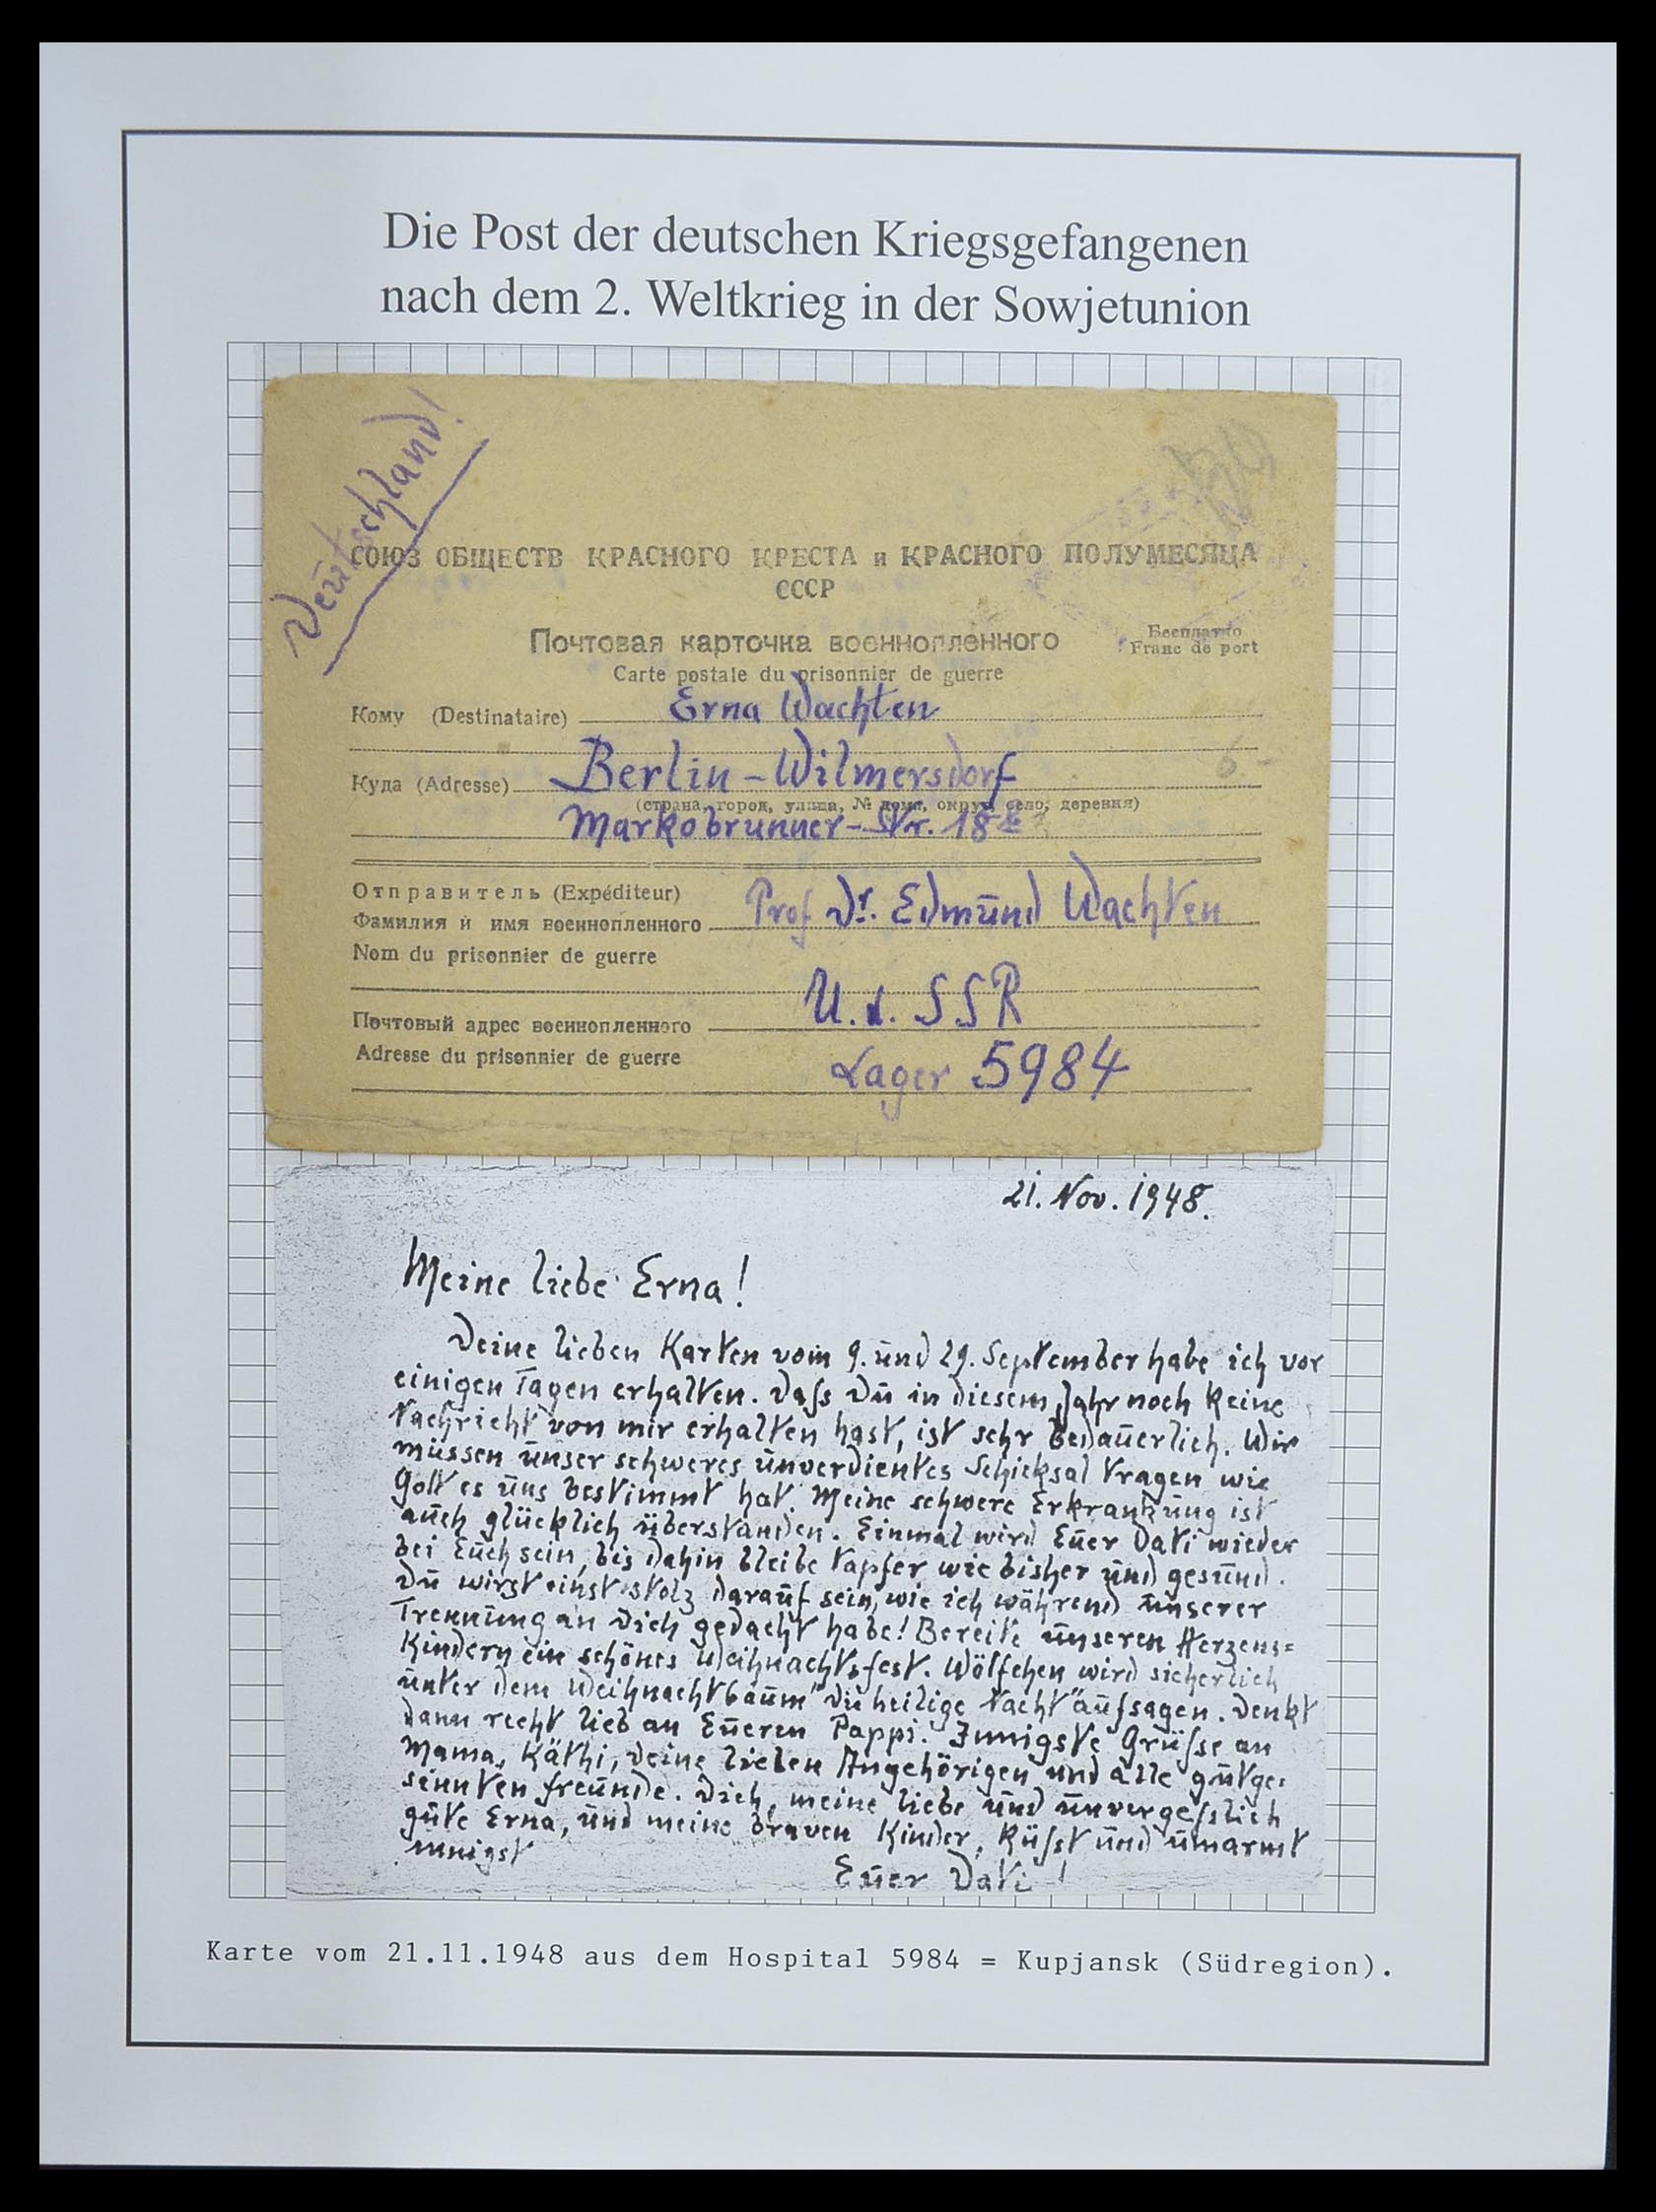 Die Post der deutschen Kriegsgefangenen
nach dem 2. Weltkrieg in der Sowjetunion
Deutschland!
СОЮЗ ОБЩЕСТВ КРАСНОГО КРЕСТА и КРАСНОГО ПОЛУМЕСЯЦА
СССР
Почтовая карточка военнопленного
Бесплатно
Franc de port
Carte postale du prisonnier de guerre
Кому (Destinataire) Erna Wachten
Куда (Adresse) Berlin-Wilmersdorf
(страна, город, улица, № дома, округ, село, деревня)
Markobrunner- Nr. 18
Отправитель (Expéditeur)
Фамилия и имя военнопленного Prof Dr. Edmund Wachten
Nom du prisonnier de guerre
Почтовый адрес военнопленного U.d.SSR
Adresse du prisonnier de guerre Lager 5984
21. Nov. 1948.
Meine liebe Erna!
Deine lieben Karten vom 9. und 29. September habe ich vor
einigen Tagen erhalten. Dass Du in diesem Jahr noch keine
Nachricht von mir erhalten hast, ist sehr bedauerlich. Wir
müssen unser schweres unverdientes Schicksal tragen wie
Gott es uns bestimmt hat. Meine schwere Erkrankung ist
auch glücklich überstanden. Einmal wird Euer Dati wieder
bei Euch sein, bis dahin bleibe tapfer wie bisher und gesund.
Du wirst einst stolz darauf sein, wie ich während unserer
Trennung an Dich gedacht habe! Bereite unseren Herzens=
kindern ein schönes Weihnachtsfest. Wölfchen wird sicherlich
unter dem Weihnachtbaum "Die heilige Nacht" aufsagen. Denkt
dann recht lieb an Eueren Pappi. Innigste Grüsse an
Mama, Käthi, Deine lieben Angehörigen und alle gutge=
sinnten Freunde. Dich, meine liebe und unvergesslich
gute Erna, und meine braven Kinder, küsst und umarmt
innigst
Euer Dati!
Karte vom 21.11.1948 aus dem Hospital 5984 = Kupjansk (Südregion).